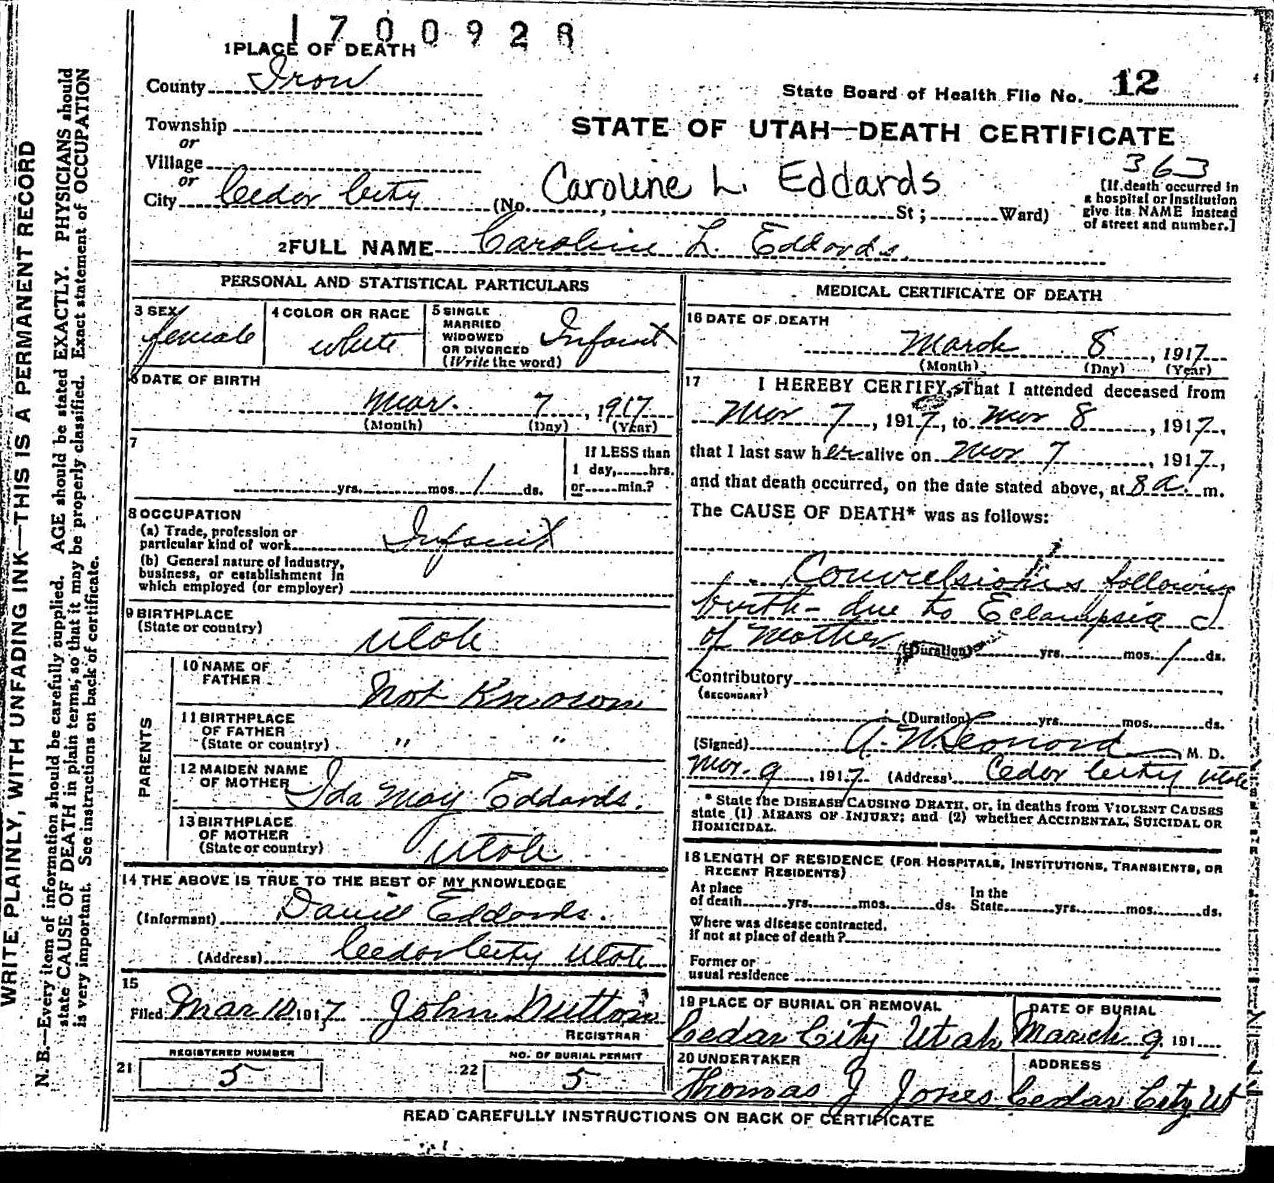 1700928
1 PLACE OF DEATH
County Iron
State Board of Health File No. 12
Township
or
STATE OF UTAH—DEATH CERTIFICATE
Village
or
363
City Cedar City
(No. St; Ward)
Caroline L. Eddards
[If death occurred in
a hospital or institution
give its NAME instead
of street and number.]
2 FULL NAME Caroline L. Eddards.
PERSONAL AND STATISTICAL PARTICULARS
3 SEX
female
4 COLOR OR RACE
white
5 SINGLE
MARRIED
WIDOWED
OR DIVORCED
(Write the word)
Infant
6 DATE OF BIRTH
Mar. 7, 1917
(Month) (Day) (Year)
7
yrs. mos. 1 ds.
If LESS than
1 day, hrs.
or min.?
8 OCCUPATION
(a) Trade, profession or
particular kind of work Infant
(b) General nature of Industry,
business, or establishment in
which employed (or employer)
9 BIRTHPLACE
(State or country)
Utah
PARENTS
10 NAME OF
FATHER
Not Known
11 BIRTHPLACE
OF FATHER
(State or country) " "
12 MAIDEN NAME
OF MOTHER Ida May Eddards.
13 BIRTHPLACE
OF MOTHER
(State or country) Utah
14 THE ABOVE IS TRUE TO THE BEST OF MY KNOWLEDGE
(Informant) Daniel Eddards.
(Address) Cedar City Utah
15
Filed Mar 10 1917 John Dutton
REGISTRAR
21 REGISTERED NUMBER
5
22 NO. OF BURIAL PERMIT
5
MEDICAL CERTIFICATE OF DEATH
16 DATE OF DEATH
March 8, 1917
(Month) (Day) (Year)
17 I HEREBY CERTIFY, That I attended deceased from
Mar 7, 1917, to Mar 8, 1917,
that I last saw her alive on Mar 7, 1917,
and that death occurred, on the date stated above, at 8 a. m.
The CAUSE OF DEATH* was as follows:
Convulsions following
birth - due to Eclampsia
of Mother (Duration) yrs. mos. 1 ds.
Contributory
(SECONDARY)
(Duration) yrs. mos. ds.
(Signed) A. N. Leonard M. D.
Mar. 9, 1917 (Address) Cedar City Utah
* State the DISEASE CAUSING DEATH, or, in deaths from VIOLENT CAUSES
state (1) MEANS OF INJURY; and (2) whether ACCIDENTAL, SUICIDAL OR
HOMICIDAL.
18 LENGTH OF RESIDENCE (FOR HOSPITALS, INSTITUTIONS, TRANSIENTS, OR
RECENT RESIDENTS)
At place
of death yrs. mos. ds.
In the
State yrs. mos. ds.
Where was disease contracted,
If not at place of death?
Former or
usual residence
19 PLACE OF BURIAL OR REMOVAL
Cedar City Utah
DATE OF BURIAL
March 9 191
20 UNDERTAKER
Thomas J Jones
ADDRESS
Cedar City Ut
READ CAREFULLY INSTRUCTIONS ON BACK OF CERTIFICATE
WRITE PLAINLY, WITH UNFADING INK—THIS IS A PERMANENT RECORD
N. B.—Every item of information should be carefully supplied. AGE should be stated EXACTLY. PHYSICIANS should
state CAUSE OF DEATH in plain terms, so that it may be properly classified. Exact statement of OCCUPATION
is very important. See instructions on back of certificate.